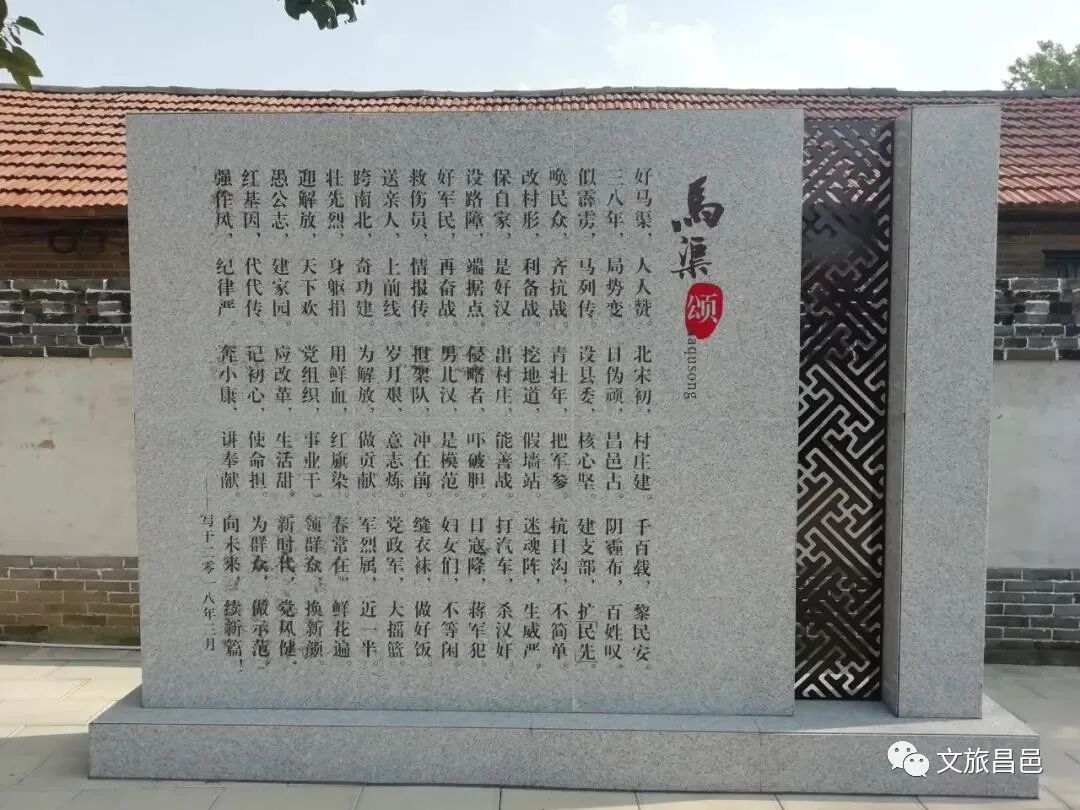 馬渠颂
aqusong
好马渠，人人赞。北宋初，村庄建。千百载，黎民安。
三八年，局势变。日伪顽，昌邑占。阴霾布，百姓叹。
似霹雳，马列传。设县委，核心坚。建支部，扩民先」。
唤民众，齐抗战。青壮年，把军参。抗日沟，不简单。
改村形，利备战。挖地道，假墙站。迷魂阵，生威严。
保自家，是好汉。出村庄，能善战。打汽车，杀汉奸。
设路障，端据点。侵略者，吓破胆。日寇降，蒋军犯。
好军民，再奋战。男儿汉，是模范。妇女们，不等闲。
救伤员，情报传。担架队，冲在前。缝衣袜，做好饭。
送亲人，上前线。岁月艰，意志炼。党政军，大摇篮。
跨南北，奇功建。为解放，做贡献。军烈属，近一半。
壮先烈，身躯捐。用鲜血，红旗染。春常在，鲜花遍。
迎解放，天下欢。党组织，事业干。领群众，换新颜。
愚公志，建家园。应改革，生活甜。新时代，党风健。
红基因，代代传。记初心，使命担。为群众，做示范。
强作风，纪律严。奔小康，讲奉献。向未来，续新篇！
——写于二零一八年三月
文旅昌邑